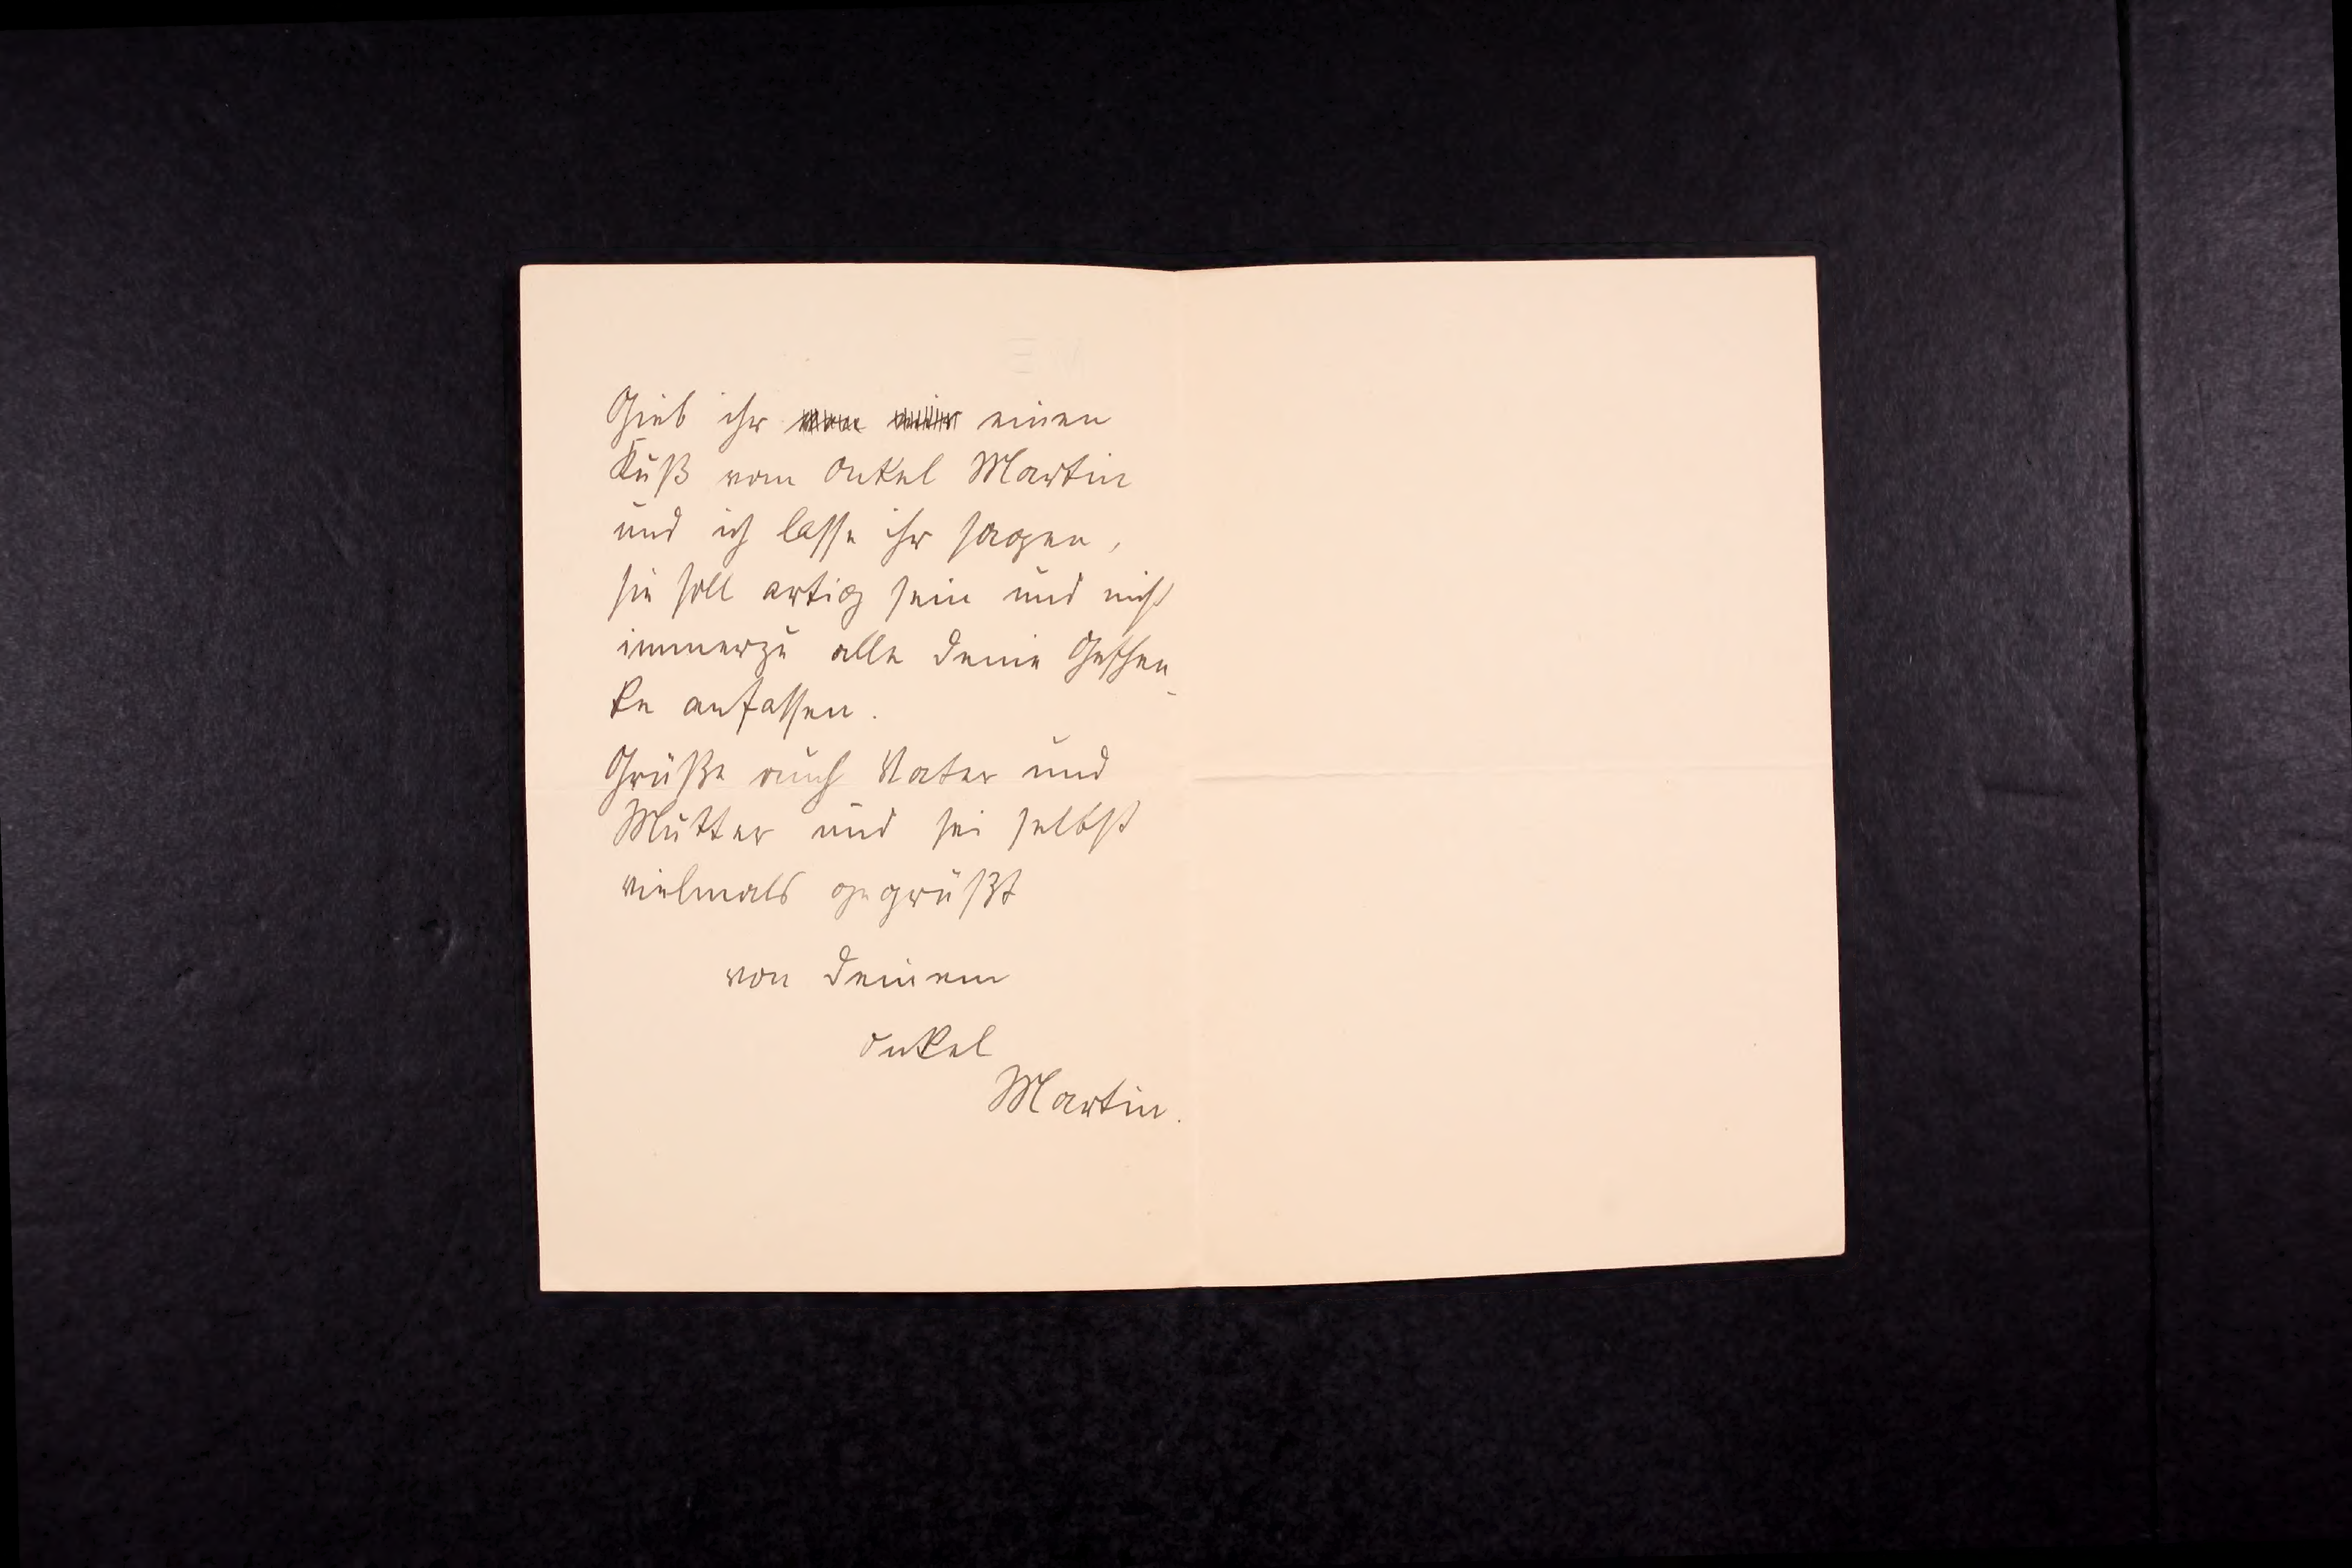 Gieb ihr einen
Kuß vom Onkel Martin
und ich lasse ihr sagen,
sie soll artig sein und nicht
immerzu alle Deine Geschen-
ke anfassen.
Grüße auch Vater und
Mutter und sei selbst
vielmals gegrüßt
von Deinem
Onkel
Martin.